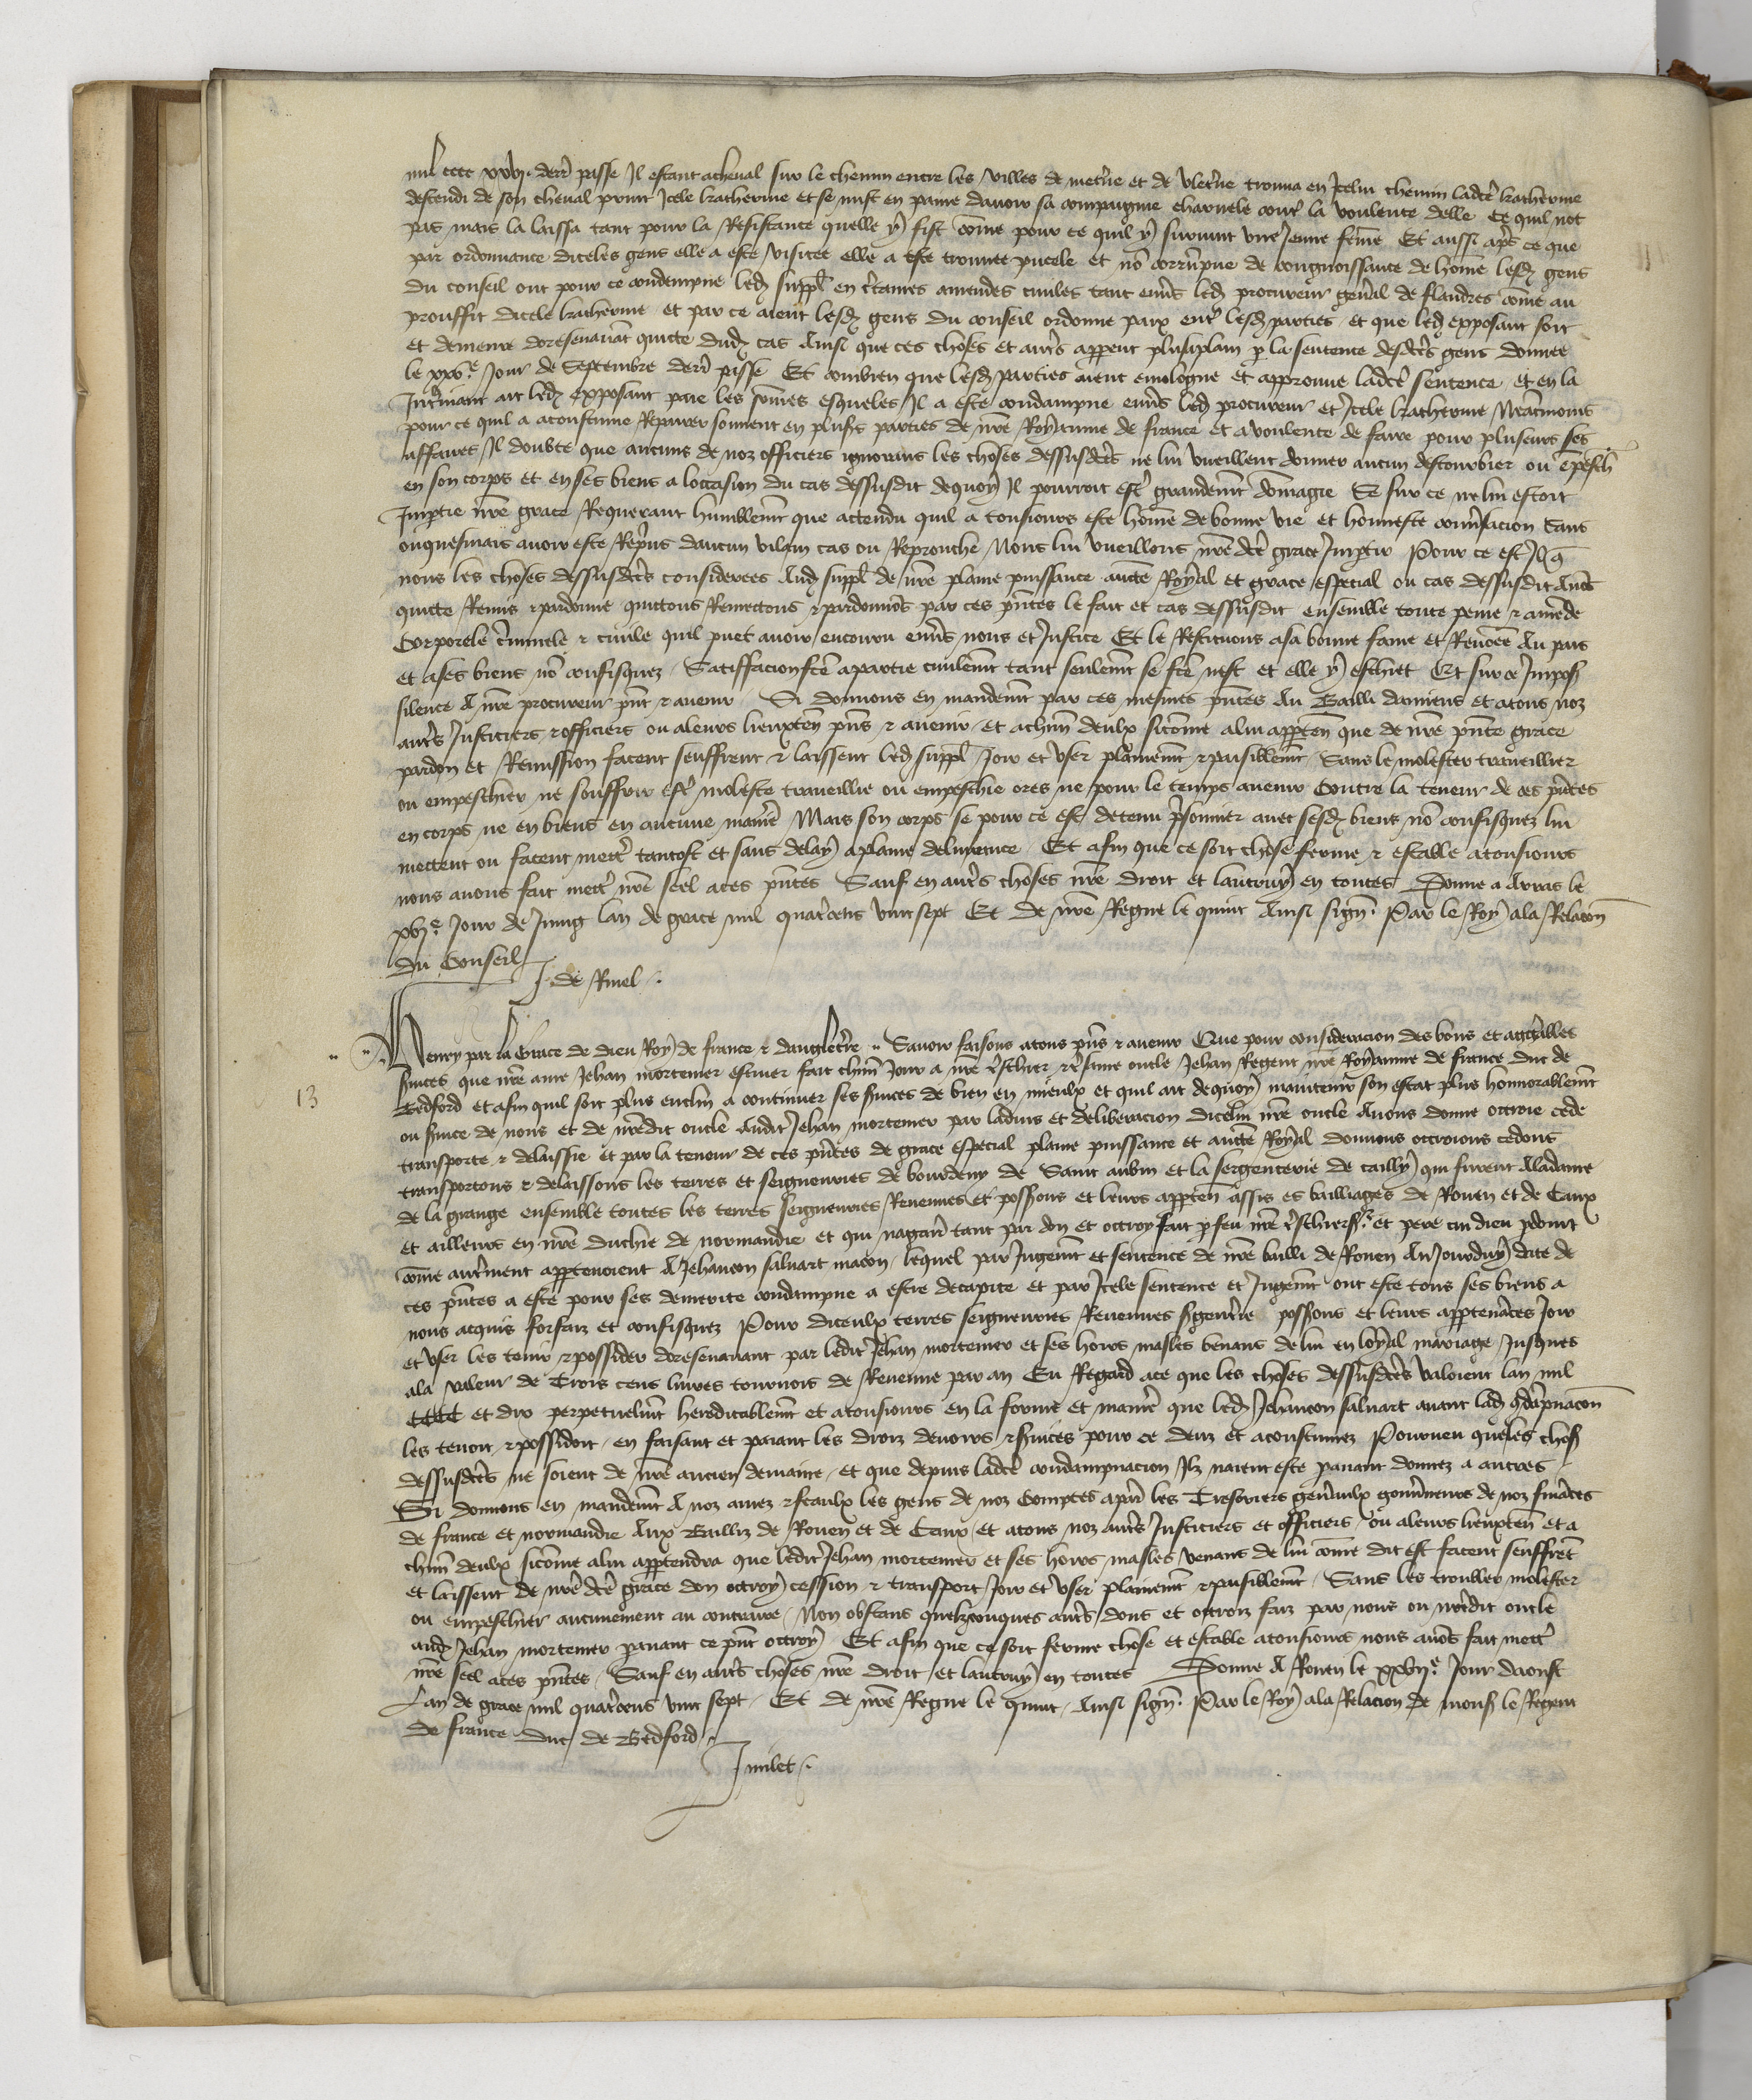 mil cccc xxvj. derr passe Il estant acheval sur le chemin entre les villes de metrne et de vletrne trouua en Icelui chemin ladcte katherine
descendi de son cheval print Icele katherine et se mist en paine dauoir sa compaignie charnele contr la voulente delle Ce quil not
pas mais la laissa tant pour la Resistance quelle y fist come pour ce quil y suruint vne Jeune feme Et aussi apres ce que
par ordonnance diceles gens elle a este visitee elle a este trouuee pucele et no corrupue de congnoissance de home lesd gens
du conseil ont pour ce condempne led suppl en certaines amendes ciuiles tant enuers led procureur general de flandres come au
prouffit dicele katherine et par ce aient lesd gens du conseil ordonne paix entr lesd parties et que led exposant soit
et demeure doresenauant quicte dud cas Ainsi que ces choses et autres apperent plusaplain p la sentence desdctes gens donnee
le xxve Jour de Septembre derr passe Et combien que lesd parties aient emologue et approuue ladcte sentence et en la
Intrinant ait led exposant paie les somes esqueles Il a este condampne enuers led procureur et Icele katherine Neantmoins
pour ce quil a acoustume Repairer souuent en plusrs parties de nre Royaume de france et a voulente de faire pour pluseurs ses
affaires Il doubte que aucuns de noz officiers ignorans les choses dessusdctes ne lui vueillent donner aucun destourbier ou epesch
en son corps et en ses biens a loccasion du cas dessusdit dequoy Il pourroit estr grandemt domagie Se sur ce ne lui estoit
Impartie nre grace Requerant humblemt que actendu quil a tousiours este home de bonne vie et honneste conuersacion sans
onquesmais auoir este Reprins daucun vilain cas ou Reprouche Nous lui vueillons nre dcte grace Impartir Pour ce est Il q
nous les choses dessusdctes considerees Aud suppl de nre plaine puissance aucte Royal et grace especial ou cas dessusdit Auos
quicte Remis & pardonne quictons Remettons & pardonnos par ces pntes le fait et cas dessusdit ensemble toute peine & amede
Corporele criminele & ciuile quil puet auoir encouru enuers nous et Justice Et le Restituons asa bonne fame et Renomee Au pais
et ases biens no confisquez Satiffacion fcte apartie ciuilemt tant seulemt se fcte nest et elle y eschiet Et sur ce Imposs
silence A nre procureur pnt & auenir Si donnons en mandemt par ces mesmes pntes Au Bailli damiens et atous noz
autres Justiciers & officiers ou aleurs lieuxten pns & auenir et achun deulx sicome alui apparten que de nre pnte grace
pardon et Remission facent seuffrent & laissent led suppl Joir et vser plainemt & paisiblemt Sans le molester trauillier
ou empeschier ne souffrir estr moleste trauillie ou empeschie ores ne pour le temps auenir Contre la teneur de ces pntes
en corps ne en biens en aucune manie Mais son corps se pour ce est detenu prisonnier auec sesd biens no confisquez lui
mettent ou facent mettr tantost et sans delay aplaine deliurance Et afin que ce soit chose ferme & estable atousiours
nous auons fait mettr nre seel aces pntes Sauf en autres choses nre droit et lautruy en toutes Donne a Arras le
xvje Jour de Juing lan de grace mil quatrecens vint sept Et de nre Regne le quint Ainsi signe. Par le Roy ala Relacon
du Conseil
J. de Rinel
Henry par la Grace de dieu Roy de france & dangletre Sauoir faisons atous pns & auenir Que pour consideracion des bons et aggreables
seruices que nre ame Jehan mortemer escuier fait chun Jour a nre treschier & tresame oncle Jehan Regent nre Royaume de france duc de
13
Bedford et afin quil soit plus enclin a continuer ses seruices de bien en mieulx et quil ait dequoy maintenir son estat plus honnorablemt
ou seruice de nous et de nredit oncle Audit Jehan mortemer par laduis et deliberacion dicelui nre oncle Auons donne octroie cede
transporte & delaissie et par la teneur de ces pntes de grace especial plaine puissance et aucte Royal donnons octroions cedons
transportons & delaissons les terres et seigneuries de bourdeny de Saint aubin et la sergenterie de cailly qui furent Aladame
de la grange ensemble toutes les terres seigneuries Reuenues et possions et leurs apparten assis es bailliages de Rouen et de Caux
et ailleurs en nre duchie de normandie et qui nagaires tant par don et octroy fait p feu nre treschier sr et pere cui dieu pdoint
come autrement appartenoient A Jehancon saluart macon lequel par Jugemt et sentence de nre bailli de Rouen Au Jourduy date de
ces pntes a este pour ses demerite condampne a estre decapite et par Icele sentence et Jugemt ont este tous ses biens a
nous acquis forfaiz et confisquez Pour diceulx terres seigneuries Reuenues sergenterie possions et leurs appartenaces Joir
et vser les tenir & possider doresenauant par ledit Jehan mortemer et ses hoirs masles venans de lui en loyal mariage Jusques
ala valeur de Trois cens liures tournois de Reuenue par an Eu Regard ace que les choses dessusdctes valoient lan mil
CCCC et dix perpetuelmt hereditablemt et atousiours en la forme et manie que led Jehancon saluart auant lad codapnacon
les tenoit & possidoit en faisant et paiant les droiz deuoirs & seruices pour ce deuz et acoustumez Pourueu que les choses
dessusdctes ne soient de nre ancien demaine et que depuis ladcte condampnacion Ilz naient este parauant donnez a autres
Si donnons en mandemt A noz amez & feaulx les gens de noz Comptes apar les Tresoriers generaulx gouuerneurs de noz finaces
de france et normandie Aux Bailliz de Rouen et de Caux et atous noz autres Justiciers et officiers ou aleurs lieuxten et a
chun deulx sicome alui appartendra que ledit Jehan mortemer et ses hoirs masles venans de lui come dit est facent seuffret
et laissent de nre dcte grace don octroy cession & transport Joir et vser plainemt & paisiblemt Sans les troubler molester
ou empeschier aucunement au contraire Non obstans quelzconques autres dons et octroiz faiz par nous ou nredit oncle
aud Jehan mortemer parauant ce pnt octroy Et afin que ce soit ferme chose et estable atousiours nous auos fait mettr
nre seel aces pntes Sauf en autres choses nre droit et lautruy en toutes Donne A Rouen le xxvije Jour daoust
Lan de grace mil quatrecens vint sept Et de nre Regne le quint Ainsi signe. Par le Roy ala Relacion de monsr le Regent
de france duc de Bedford
J milet